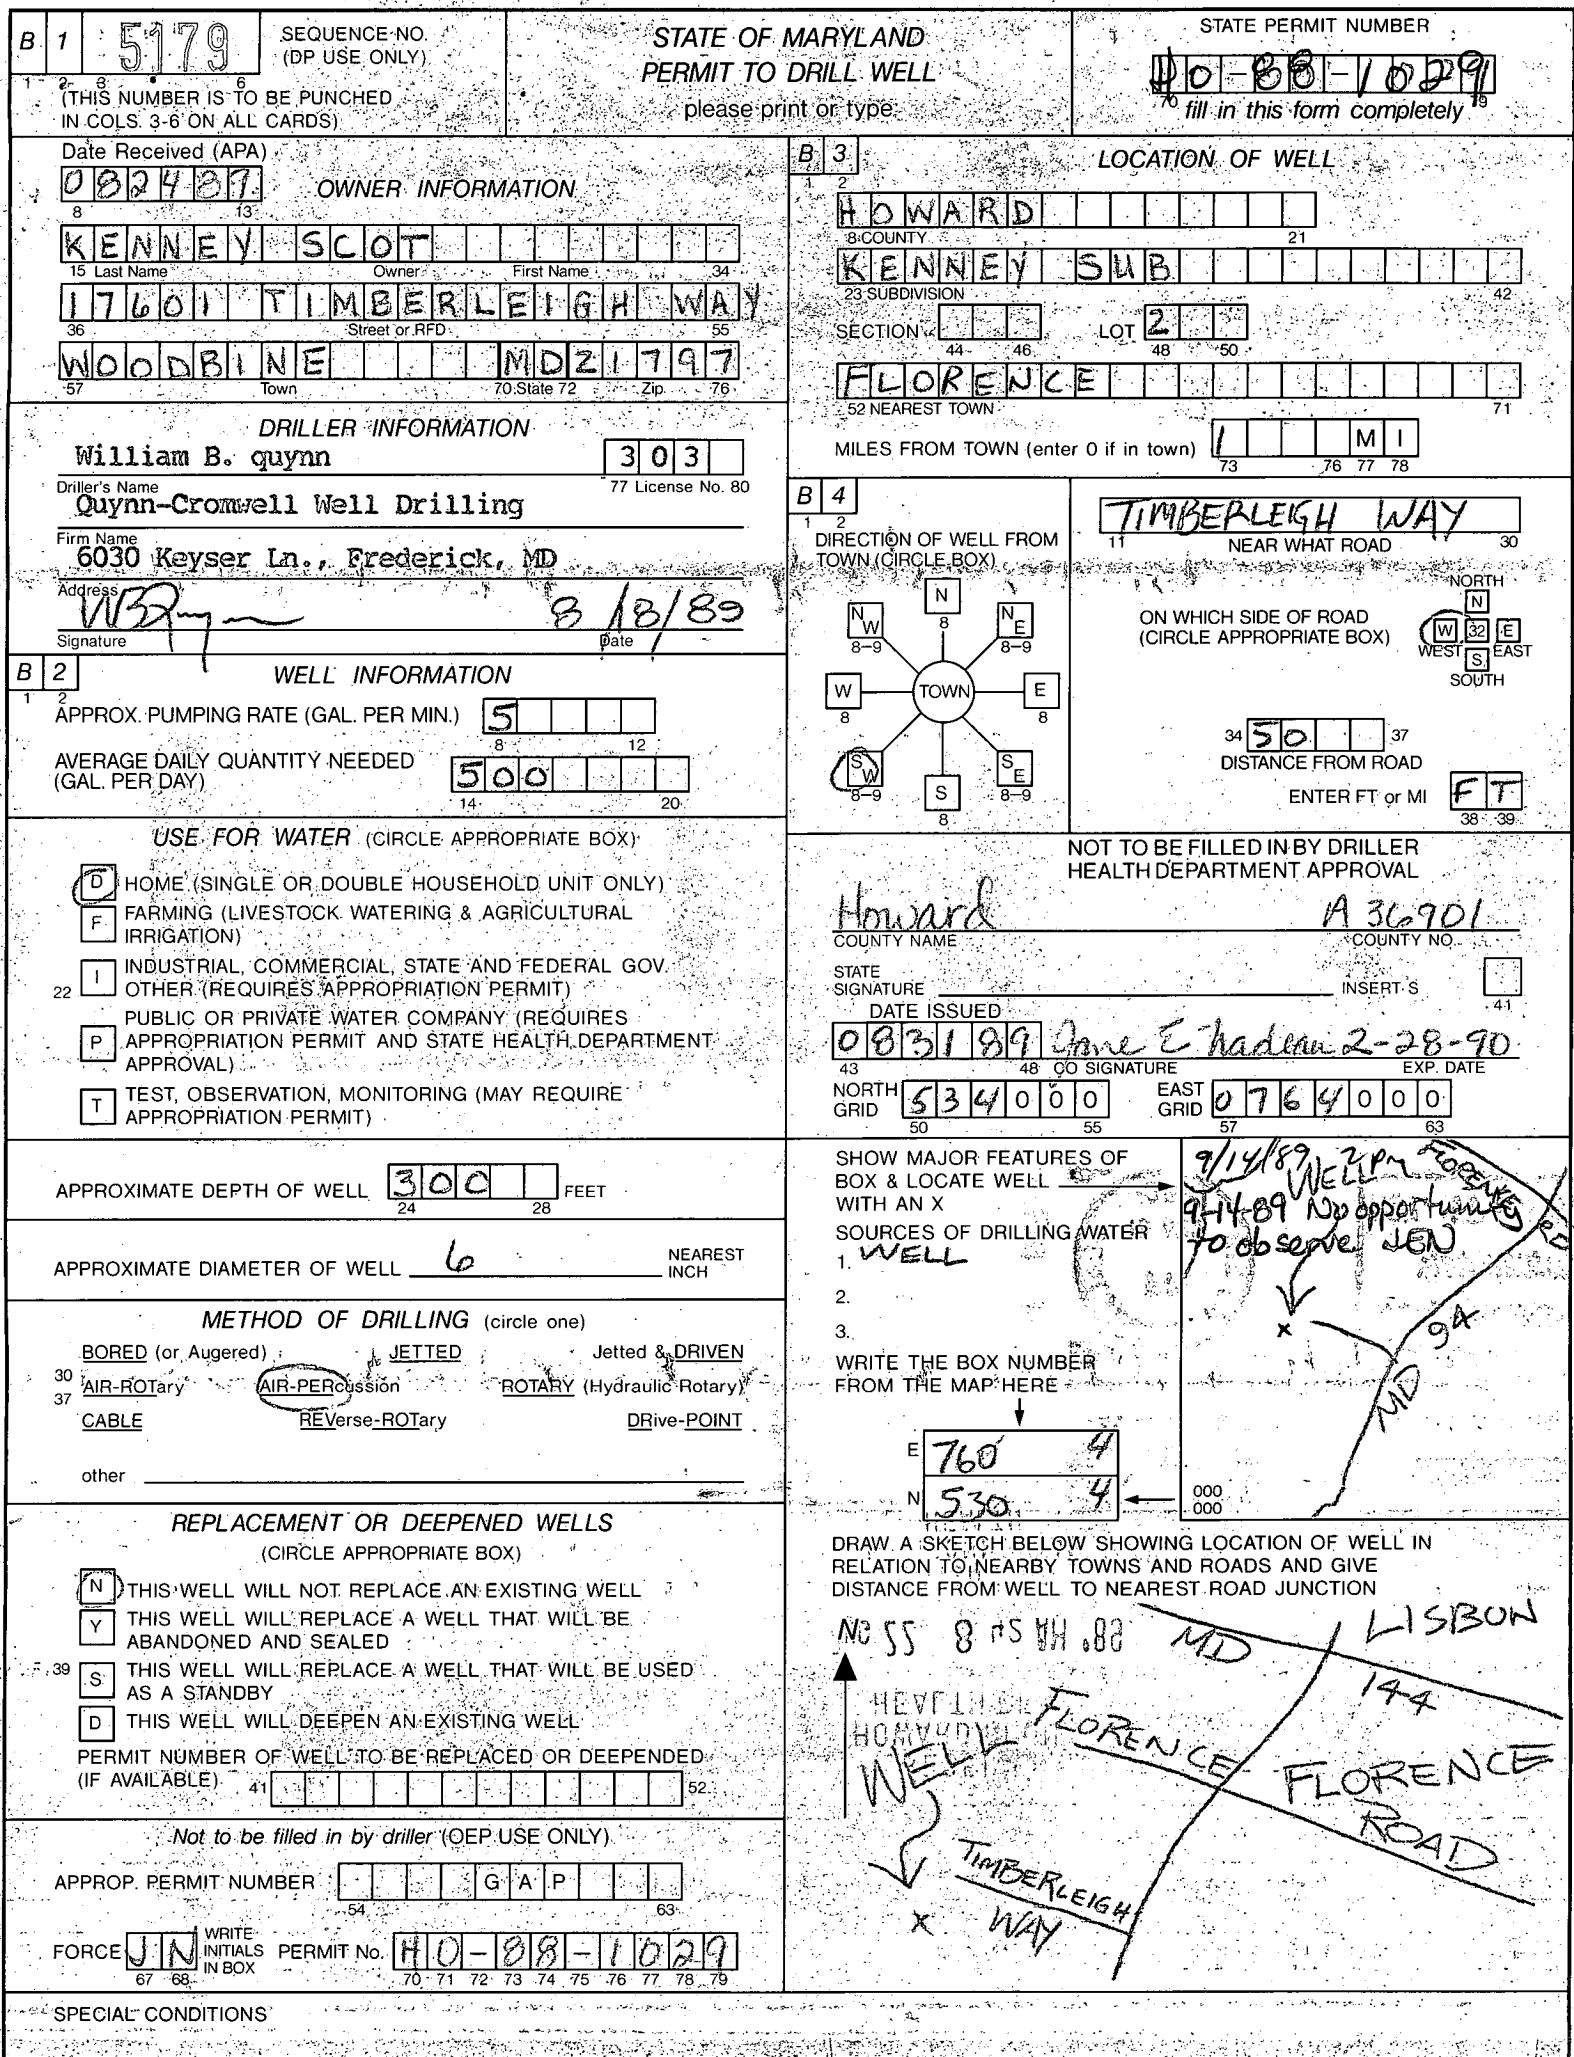 B 1 5179 SEQUENCE NO. (DP USE ONLY)
1 2 3 6
(THIS NUMBER IS TO BE PUNCHED
IN COLS. 3-6 ON ALL CARDS)
STATE OF MARYLAND
PERMIT TO DRILL WELL
please print or type
STATE PERMIT NUMBER
HO-88-1029
70 79
fill in this form completely
Date Received (APA)
082489
8 13
OWNER INFORMATION
KENNEY SCOT
15 Last Name Owner First Name 34
17601 TIMBERLEIGH WAY
36 Street or RFD 55
WOODBINE MD21797
57 Town 70 State 72 Zip 76
DRILLER INFORMATION
William B. quynn 303
Driller's Name 77 License No. 80
Quynn-Cromwell Well Drilling
Firm Name
6030 Keyser Ln., Frederick, MD
Address
8/18/89
Signature Date
B 2 WELL INFORMATION
1 2
APPROX. PUMPING RATE (GAL. PER MIN.) 5
8 12
AVERAGE DAILY QUANTITY NEEDED
(GAL. PER DAY) 500
14 20
USE FOR WATER (CIRCLE APPROPRIATE BOX)
D HOME (SINGLE OR DOUBLE HOUSEHOLD UNIT ONLY)
F FARMING (LIVESTOCK WATERING & AGRICULTURAL
IRRIGATION)
22 I INDUSTRIAL, COMMERCIAL, STATE AND FEDERAL GOV.
OTHER (REQUIRES APPROPRIATION PERMIT)
P PUBLIC OR PRIVATE WATER COMPANY (REQUIRES
APPROPRIATION PERMIT AND STATE HEALTH DEPARTMENT
APPROVAL)
T TEST, OBSERVATION, MONITORING (MAY REQUIRE
APPROPRIATION PERMIT)
APPROXIMATE DEPTH OF WELL 300 FEET
24 28
APPROXIMATE DIAMETER OF WELL 6 NEAREST
INCH
METHOD OF DRILLING (circle one)
BORED (or Augered) JETTED Jetted & DRIVEN
30 AIR-ROTary AIR-PERcussion ROTARY (Hydraulic Rotary)
37
CABLE REVerse-ROTary DRive-POINT
other
REPLACEMENT OR DEEPENED WELLS
(CIRCLE APPROPRIATE BOX)
N THIS WELL WILL NOT REPLACE AN EXISTING WELL
Y THIS WELL WILL REPLACE A WELL THAT WILL BE
ABANDONED AND SEALED
39 S THIS WELL WILL REPLACE A WELL THAT WILL BE USED
AS A STANDBY
D THIS WELL WILL DEEPEN AN EXISTING WELL
PERMIT NUMBER OF WELL TO BE REPLACED OR DEEPENED
(IF AVAILABLE) 41 52
Not to be filled in by driller (OEP USE ONLY)
APPROP. PERMIT NUMBER GAP
54 63
FORCE JN WRITE INITIALS IN BOX PERMIT No. HO-88-1029
67 68 70 71 72 73 74 75 76 77 78 79
SPECIAL CONDITIONS
B 3 LOCATION OF WELL
1 2
HOWARD
8 COUNTY 21
KENNEY SUB
23 SUBDIVISION 42
SECTION LOT 2
44 46 48 50
FLORENCE
52 NEAREST TOWN 71
MILES FROM TOWN (enter 0 if in town) 1 MI
73 76 77 78
B 4
1 2
DIRECTION OF WELL FROM
TOWN (CIRCLE BOX)
N
8
NW NE
8-9 8-9
W TOWN E
8 8
SW SE
8-9 8-9
S
8
TIMBERLEIGH WAY
11 NEAR WHAT ROAD 30
ON WHICH SIDE OF ROAD
(CIRCLE APPROPRIATE BOX)
NORTH
N
W 32 E
WEST EAST
S
SOUTH
34 50 37
DISTANCE FROM ROAD
ENTER FT or MI FT
38 39
NOT TO BE FILLED IN BY DRILLER
HEALTH DEPARTMENT APPROVAL
Howard A 36901
COUNTY NAME COUNTY NO.
STATE
SIGNATURE INSERT S
41
DATE ISSUED
083189 Jane E Nadeau 2-28-90
43 48 CO SIGNATURE EXP. DATE
NORTH GRID 534000 EAST GRID 0764000
50 55 57 63
SHOW MAJOR FEATURES OF
BOX & LOCATE WELL
WITH AN X
SOURCES OF DRILLING WATER
1. WELL
2.
3.
WRITE THE BOX NUMBER
FROM THE MAP HERE
E 760 4
N 530 4
000
000
9/14/89 2 pm
WELL
FLORENCE RD
9-14-89 No opportunity
to observe JEN
X
94
MD
DRAW A SKETCH BELOW SHOWING LOCATION OF WELL IN
RELATION TO NEARBY TOWNS AND ROADS AND GIVE
DISTANCE FROM WELL TO NEAREST ROAD JUNCTION
MD LISBON
144
FLORENCE
FLORENCE
ROAD
WELL
TIMBERLEIGH
WAY
X